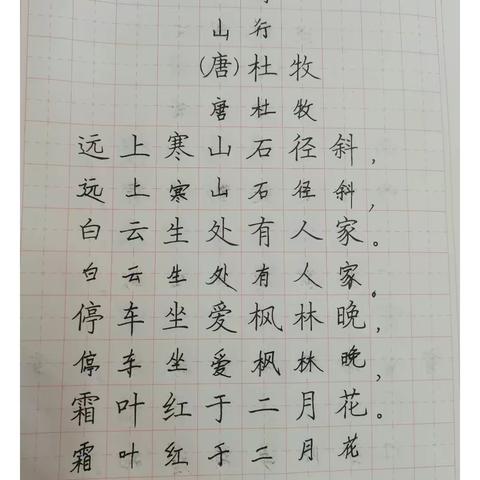 山行
(唐)杜牧
唐杜牧
远上寒山石径斜，
远上寒山石径斜，
白云生处有人家。
白云生处有人家。
停车坐爱枫林晚，
停车坐爱枫林晚，
霜叶红于二月花。
霜叶红于二月花